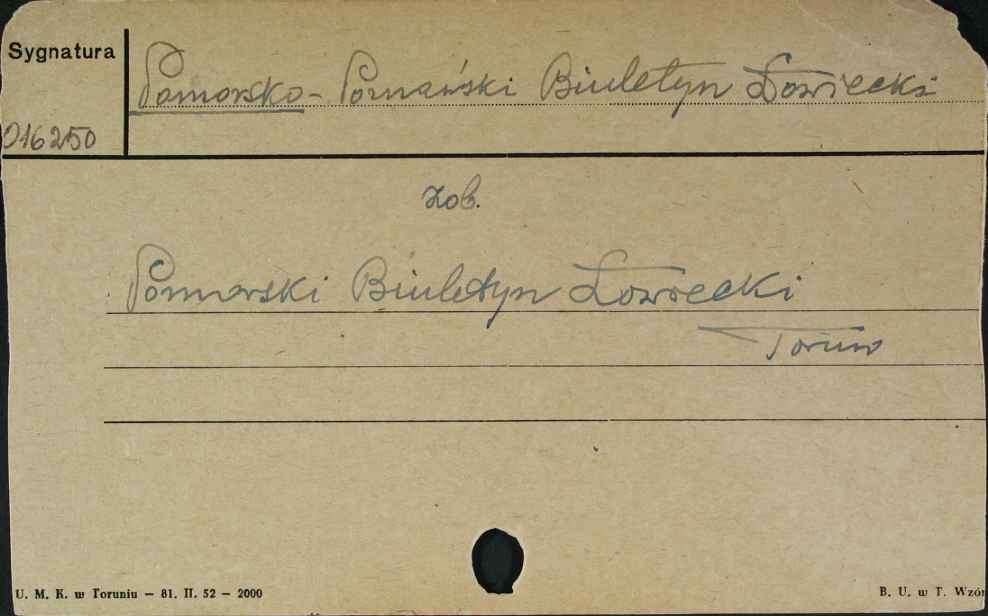 Sygnatura
Pomorsko-Poznański Biuletyn Łowiecki
016250
zob.
Pomorski Biuletyn Łowiecki
Toruń
U. M. K. w Toruniu — 81. II. 52 — 2000
B. U. w T. Wzór